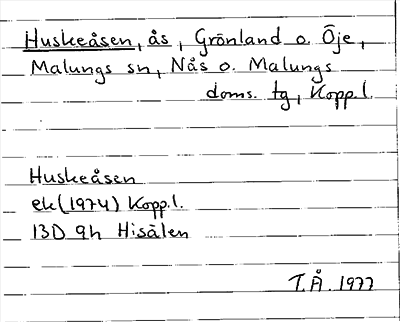 Huskeåsen, ås, Grönland o. Öje,
Malungs sn, Nås o. Malungs
doms. tg, Kopp.l.
Huskeåsen
ek (1974) Kopp.l.
13D 9h Hisälen
T.Å. 1977